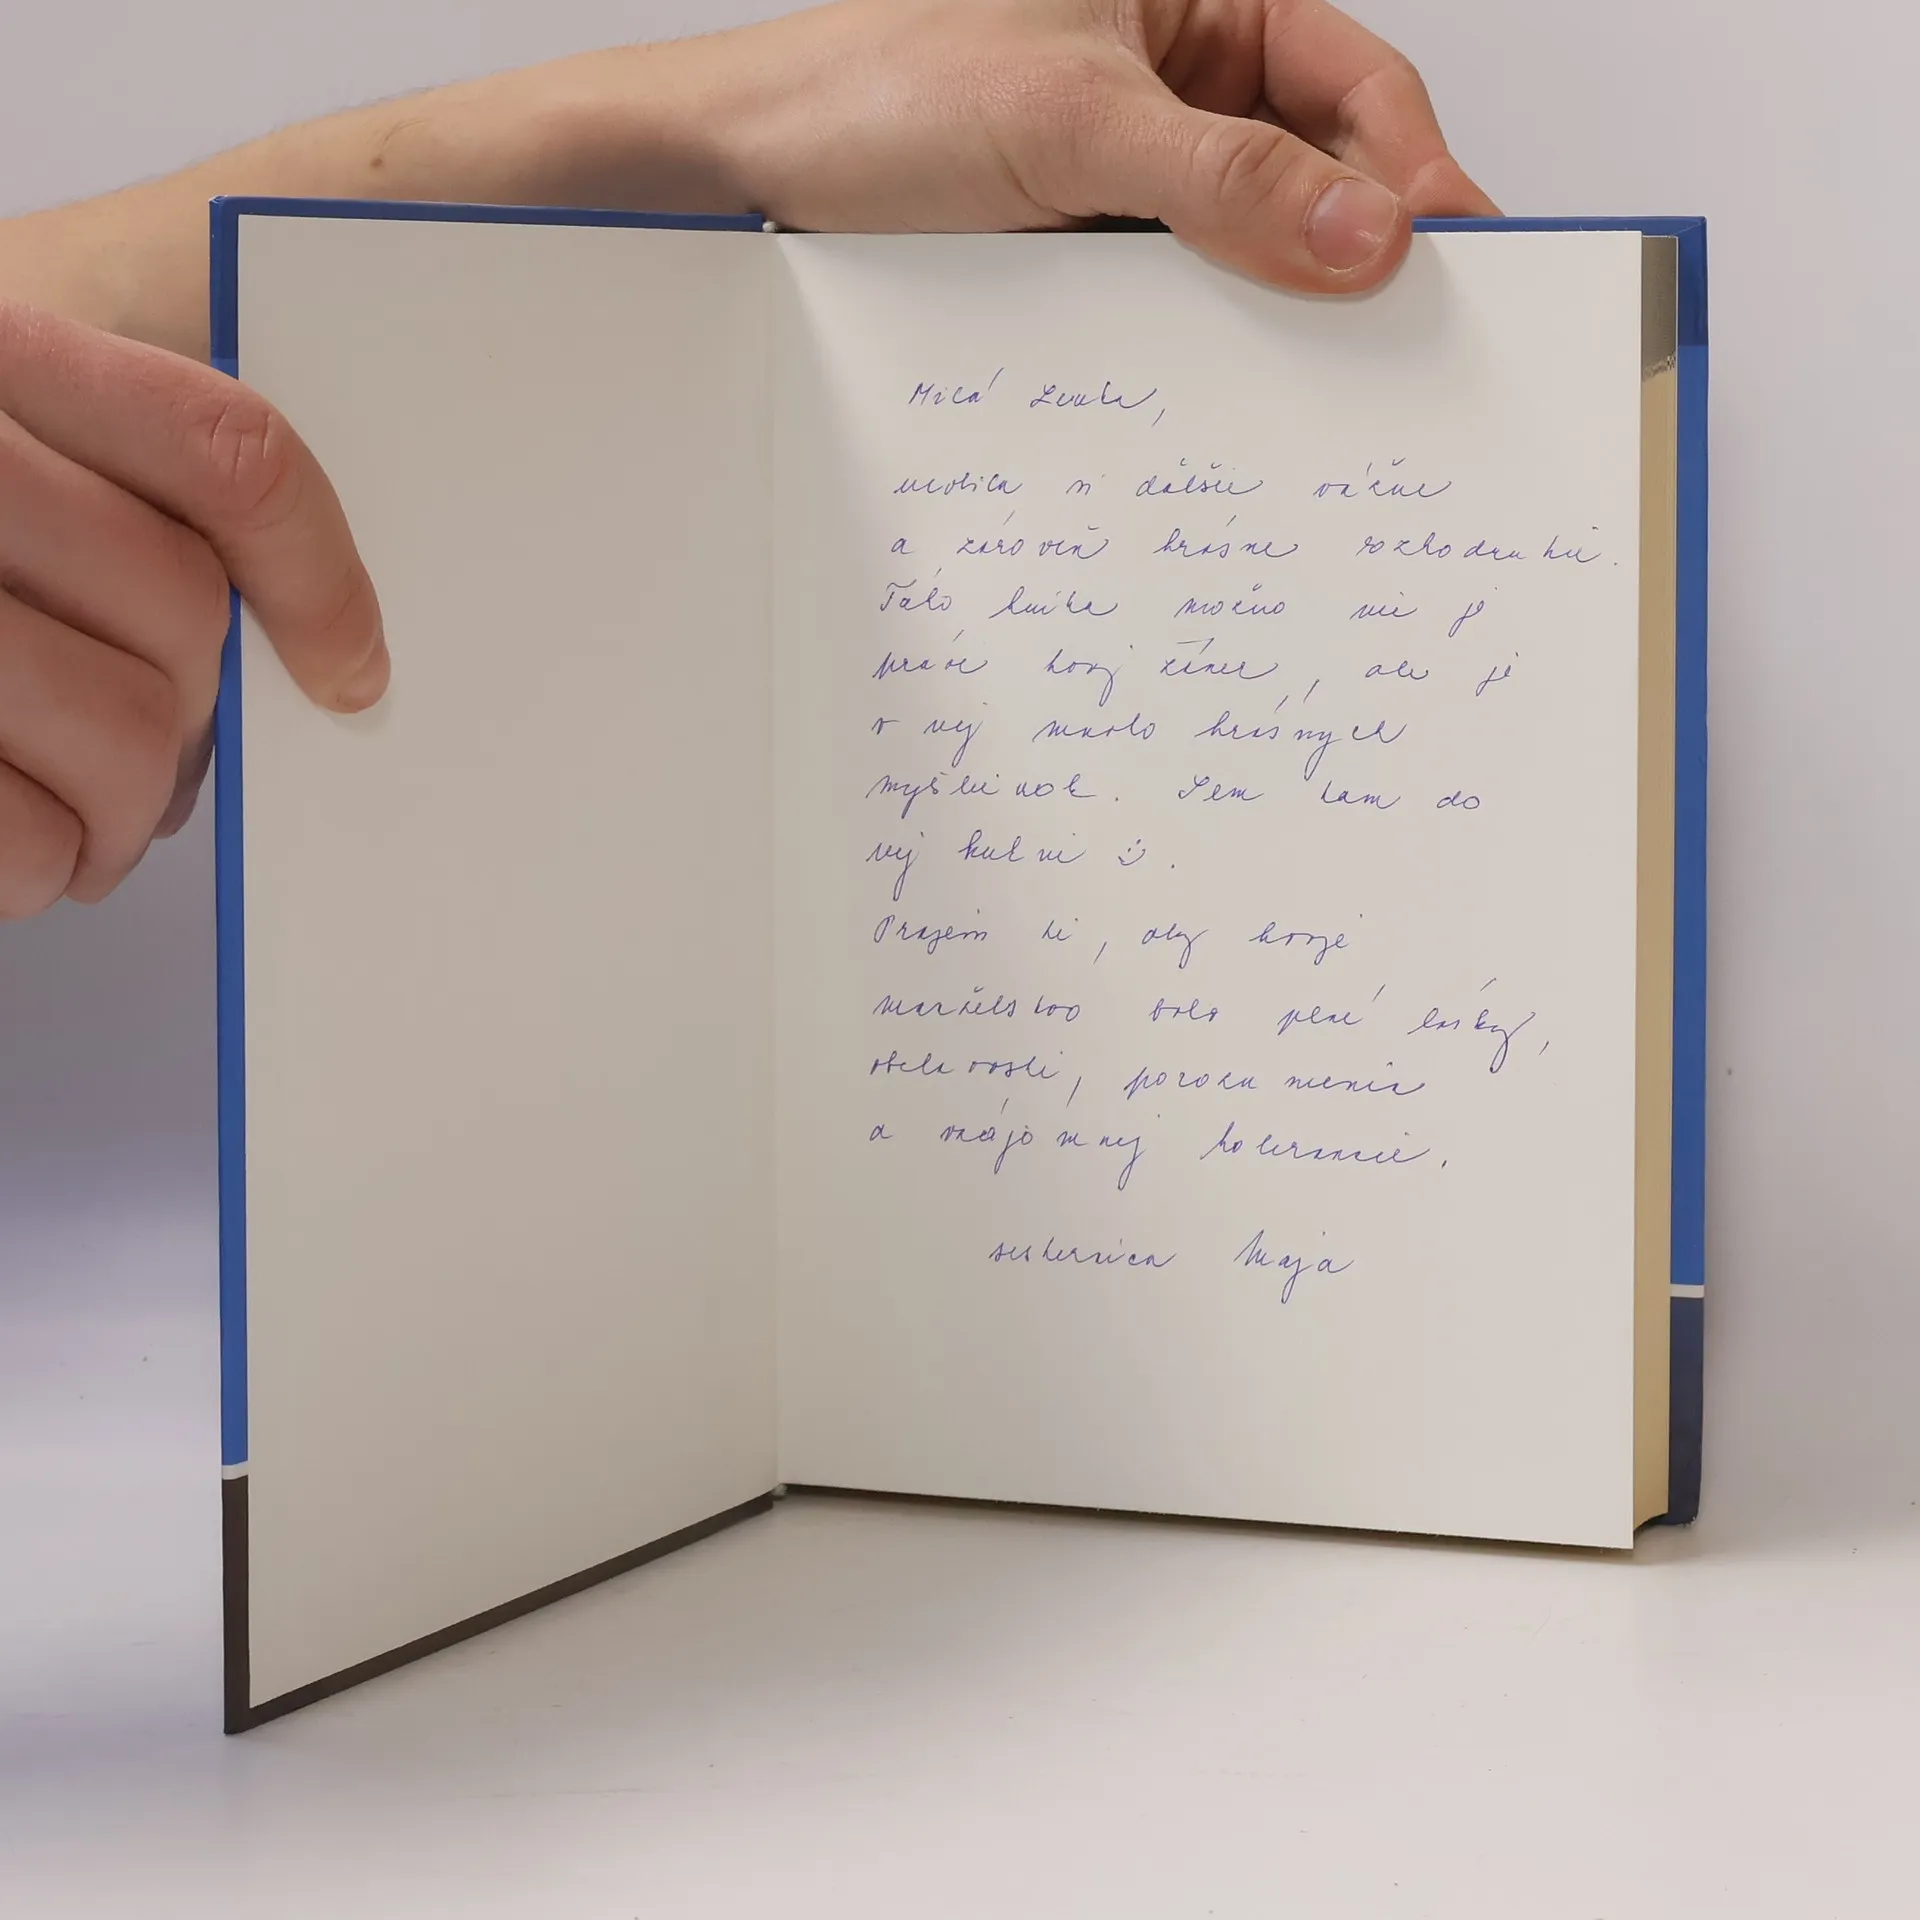 Milá Lenka,
urobila si ďalšie vážne
a zároveň krásne rozhodnutie.
Táto kniha možno nie je
práve tvoj žáner, ale je
v nej mnoho krásnych
myšlienok. Sem tam do
nej kukni :).
Prajem ti, aby tvoje
manželstvo bolo plné lásky,
obetavosti, porozumenia
a vzájomnej tolerancie.
sesternica Maja